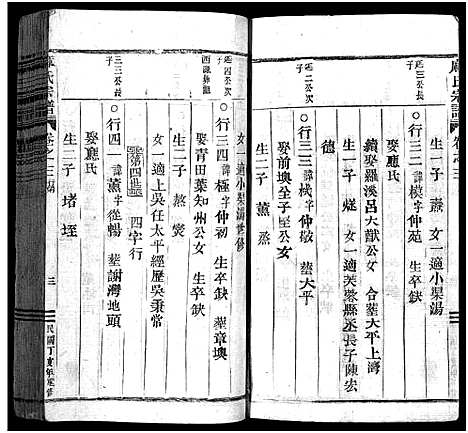 三公長子
〇行三二諱模字仲苑 生卒缺
娶應氏
生一子 燾 女一適小杲湯
續娶羅溪呂大猷公女 合葬大平上灣
生一子 燧 女一適芙蓉縣丞長子陳宏
德
延二公次子
〇行三三諱棫字仲敬 葬大平
娶前墺全子堅公女
生二子 薰 烝
延四公次子
〇行三四諱極字仲初 生卒缺 葬章墺
娶青田葉知州公女 生卒缺
生二子 熬 熒
女一適上吳任太平經歷吳秉常
女一適小杲湯世修
第四世 四字行
三三公長子
〇行四一諱薰字從暢 葬謝灣地頭
娶應氏
生二子 堵 垤
氏宗譜
卷之三
三
民國丁亥年重修
氏宗譜
卷之三